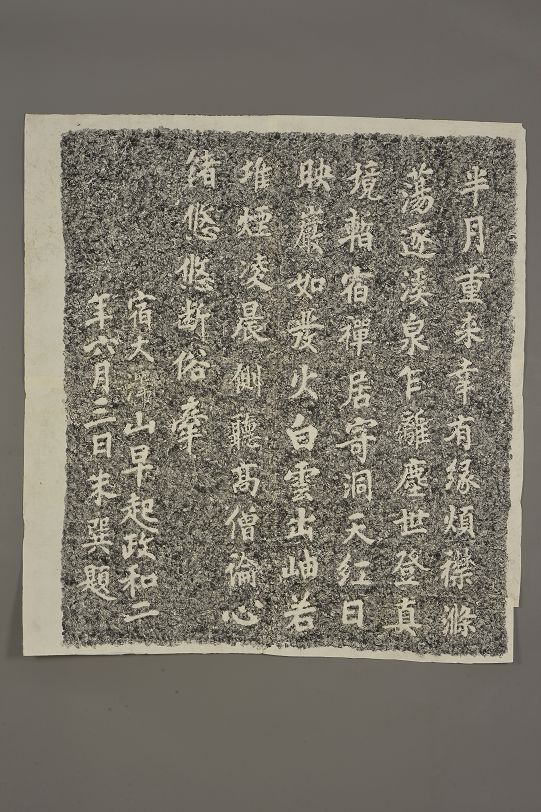 半月重来幸有緣煩襟滌
蕩逐溪泉乍離塵世登真
境暫宿禪居寄洞天紅日
映巖如發火白雲出岫若
堆煙凌晨側聽髙僧論心
緒悠悠断俗牽
宿大潙山早起政和二
年六月三日朱巽題